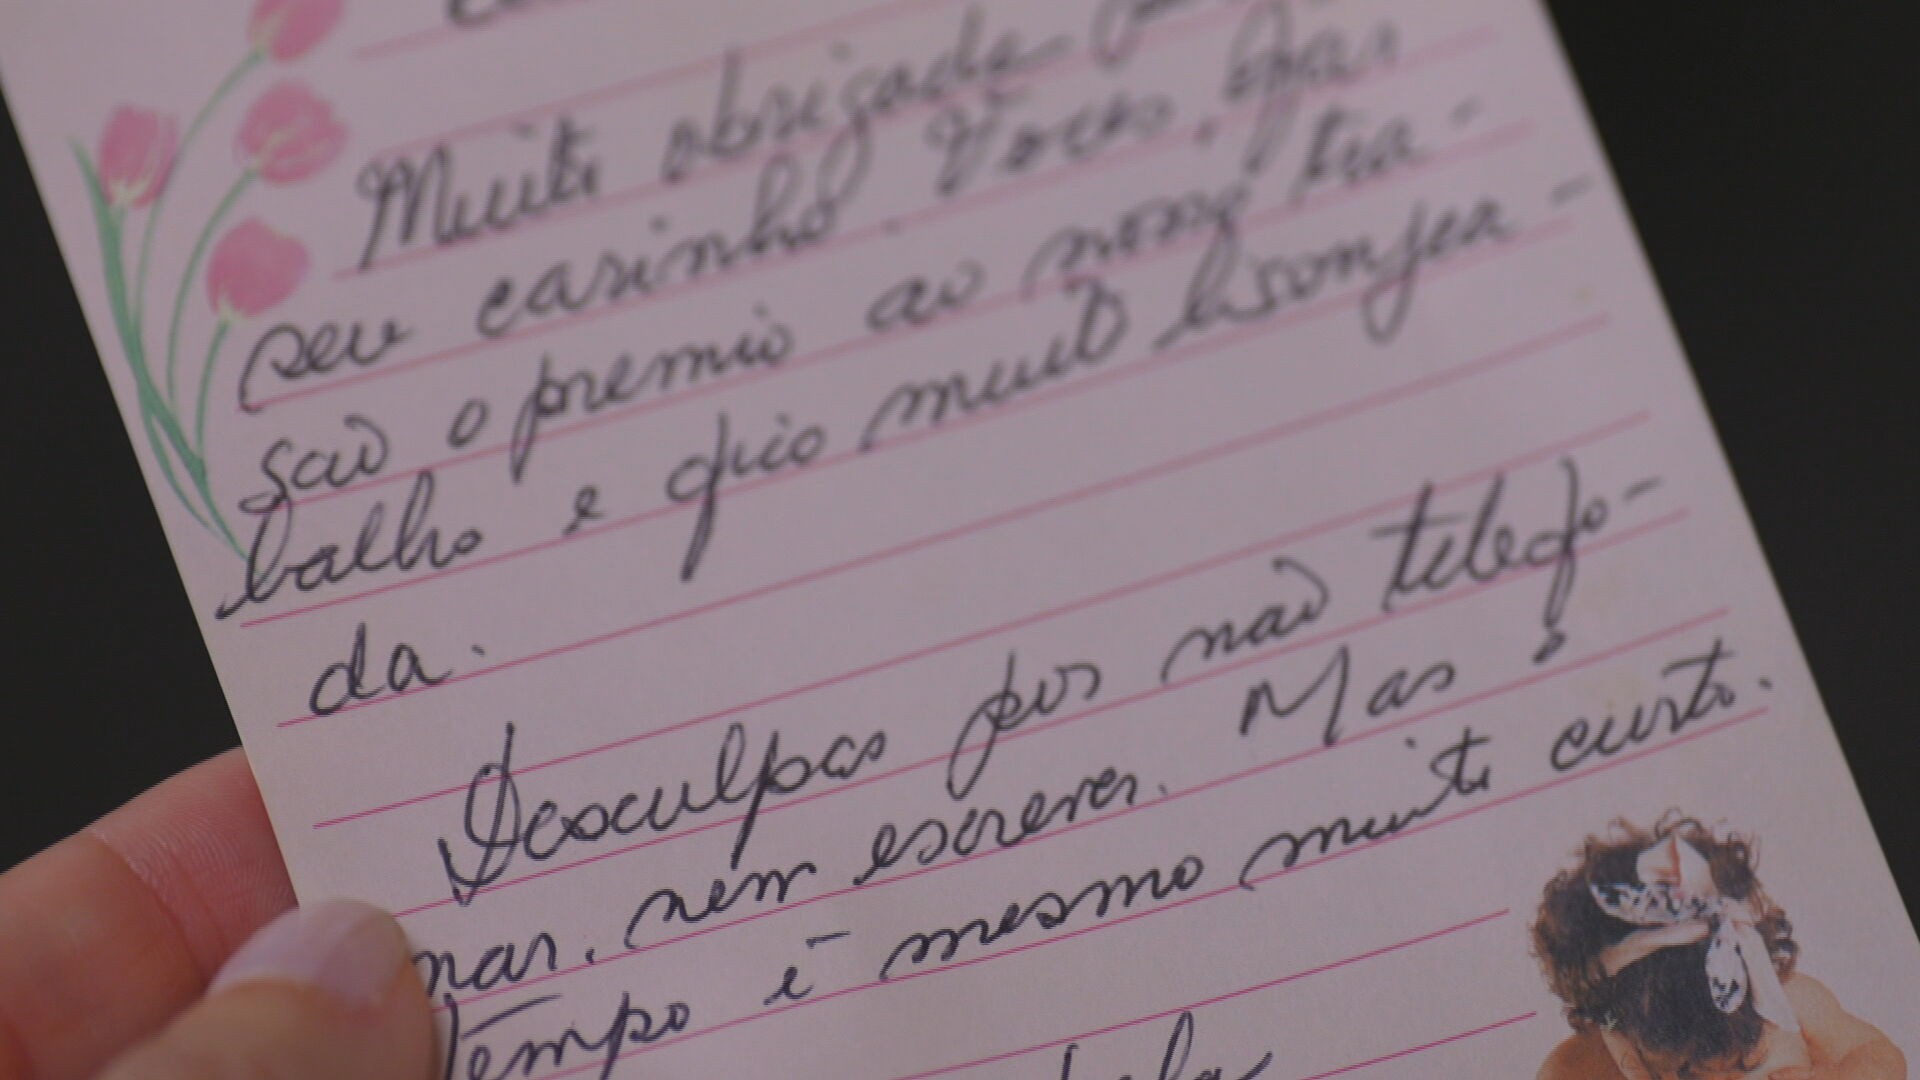 Muito obrigada
seu carinho. Voces, fãs
são o premio ao nosso tra-
balho e fico muito lisonjea-
da.
Desculpas por não telefo-
nar, nem escrever. Mas o
tempo é mesmo muito curto.